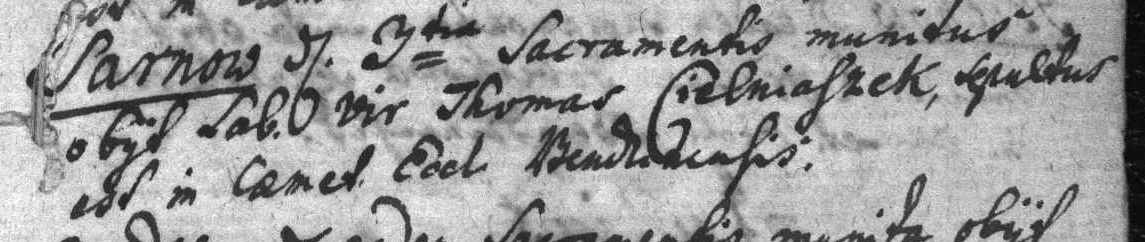 Sarnow d. 3tia Sacramentis munitus
obijt Lab. vir Thomas Cielniaszek, sepultus
est in Cæmet. Eccl. Bendzinensis.
Sacramentis munita obijt